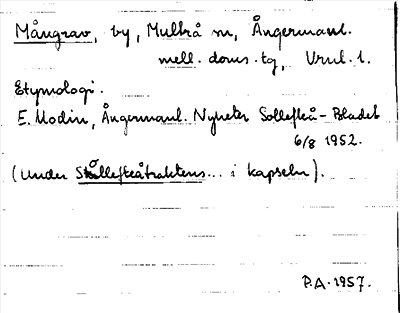 Mångrav, by, Multrå sn, Ångermanl.
mell. doms. tg,
Etymologi.
E. Modin, Ångermanl. Nyheter Sollefteå-Bladet
6/8 1952.
(Under Sollefteåtraktens... i kapseln).
P.A. 1957.